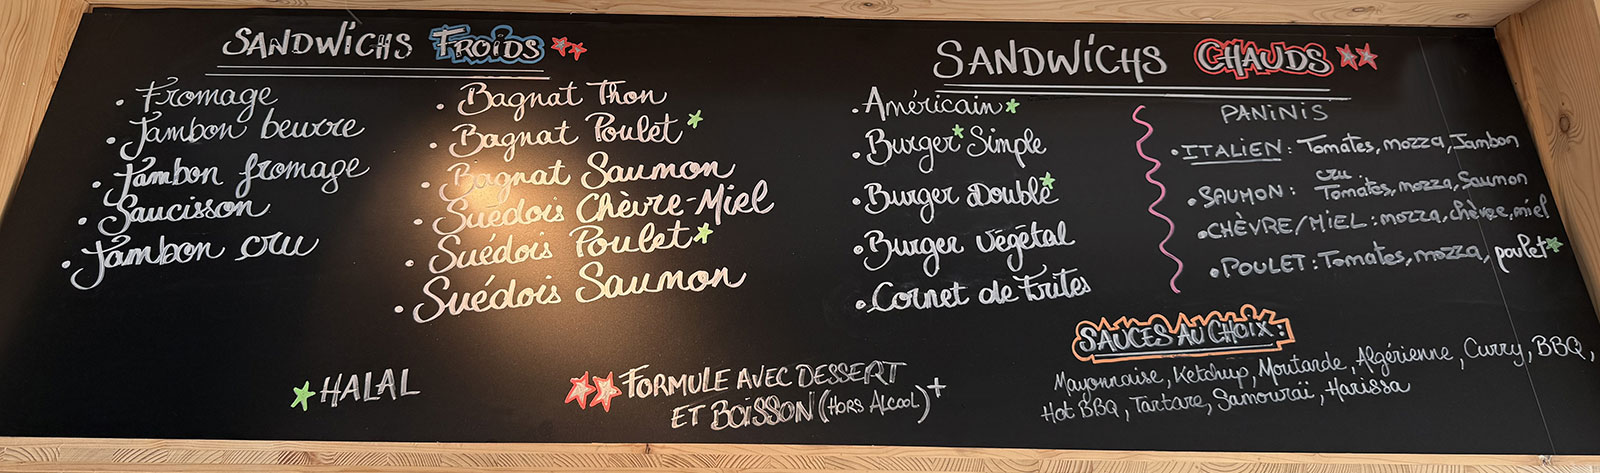 SANDWICHS FROIDS
• Fromage
• Jambon beurre
• Jambon fromage
• Saucisson
• Jambon cru
• Bagnat Thon
• Bagnat Poulet
• Bagnat Saumon
• Suédois Chèvre-Miel
• Suédois Poulet
• Suédois Saumon
HALAL
FORMULE AVEC DESSERT
ET BOISSON (HORS ALCOOL)+
SANDWICHS CHAUDS
• Américain
• Burger Simple
• Burger Double
• Burger végétal
• Cornet de Frites
PANINIS
• ITALIEN : Tomates, mozza, Jambon
cru.
• SAUMON : Tomates, mozza, Saumon
• CHÈVRE/MIEL : mozza, chèvre, miel
• POULET : Tomates, mozza, poulet
SAUCES AU CHOIX :
Mayonnaise, Ketchup, Moutarde, Algérienne, Curry, BBQ,
Hot BBQ, Tartare, Samouraï, Harissa